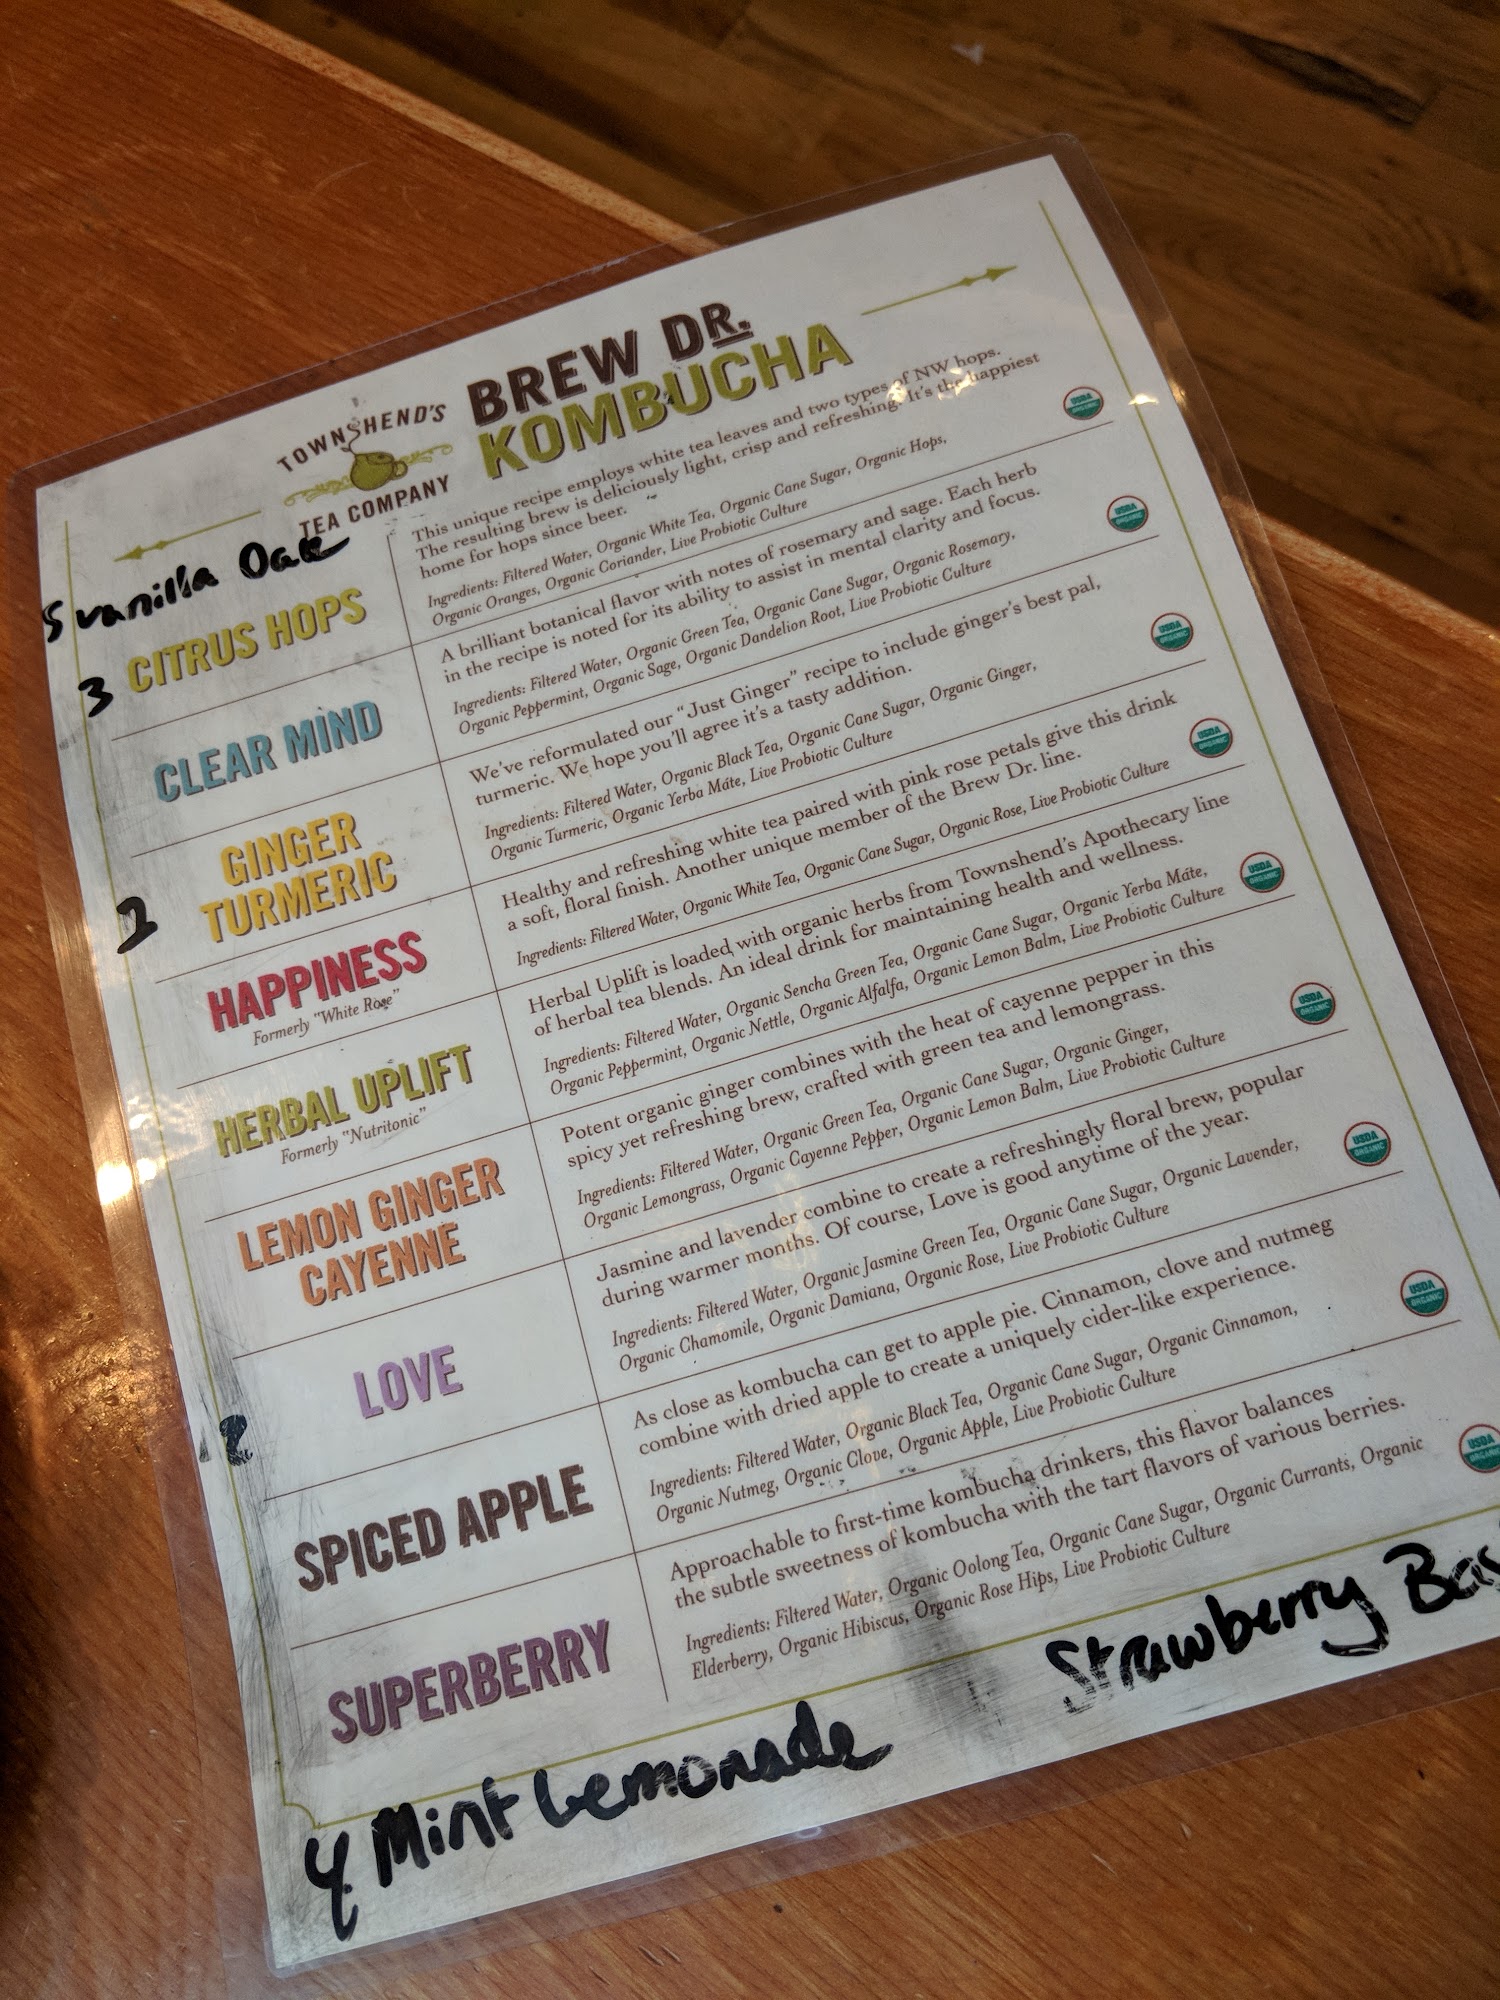 TOWNSHEND'S
TEA COMPANY
BREW DR.
KOMBUCHA
5 vanilla Oak
3
CITRUS HOPS
This unique recipe employs white tea leaves and two types of NW hops.
The resulting brew is deliciously light, crisp and refreshing. It's the happiest
home for hops since beer.
Ingredients: Filtered Water, Organic White Tea, Organic Cane Sugar, Organic Hops,
Organic Oranges, Organic Coriander, Live Probiotic Culture
USDA
ORGANIC
CLEAR MIND
A brilliant botanical flavor with notes of rosemary and sage. Each herb
in the recipe is noted for its ability to assist in mental clarity and focus.
Ingredients: Filtered Water, Organic Green Tea, Organic Cane Sugar, Organic Rosemary,
Organic Peppermint, Organic Sage, Organic Dandelion Root, Live Probiotic Culture
USDA
ORGANIC
2
GINGER
TURMERIC
We've reformulated our "Just Ginger" recipe to include ginger's best pal,
turmeric. We hope you'll agree it's a tasty addition.
Ingredients: Filtered Water, Organic Black Tea, Organic Cane Sugar, Organic Ginger,
Organic Turmeric, Organic Yerba Máte, Live Probiotic Culture
USDA
ORGANIC
HAPPINESS
Formerly "White Rose"
Healthy and refreshing white tea paired with pink rose petals give this drink
a soft, floral finish. Another unique member of the Brew Dr. line.
Ingredients: Filtered Water, Organic White Tea, Organic Cane Sugar, Organic Rose, Live Probiotic Culture
USDA
ORGANIC
HERBAL UPLIFT
Formerly "Nutritonic"
Herbal Uplift is loaded with organic herbs from Townshend's Apothecary line
of herbal tea blends. An ideal drink for maintaining health and wellness.
Ingredients: Filtered Water, Organic Sencha Green Tea, Organic Cane Sugar, Organic Yerba Máte,
Organic Peppermint, Organic Nettle, Organic Alfalfa, Organic Lemon Balm, Live Probiotic Culture
USDA
ORGANIC
LEMON GINGER
CAYENNE
Potent organic ginger combines with the heat of cayenne pepper in this
spicy yet refreshing brew, crafted with green tea and lemongrass.
Ingredients: Filtered Water, Organic Green Tea, Organic Cane Sugar, Organic Ginger,
Organic Lemongrass, Organic Cayenne Pepper, Organic Lemon Balm, Live Probiotic Culture
USDA
ORGANIC
LOVE
Jasmine and lavender combine to create a refreshingly floral brew, popular
during warmer months. Of course, Love is good anytime of the year.
Ingredients: Filtered Water, Organic Jasmine Green Tea, Organic Cane Sugar, Organic Lavender,
Organic Chamomile, Organic Damiana, Organic Rose, Live Probiotic Culture
USDA
ORGANIC
SPICED APPLE
As close as kombucha can get to apple pie. Cinnamon, clove and nutmeg
combine with dried apple to create a uniquely cider-like experience.
Ingredients: Filtered Water, Organic Black Tea, Organic Cane Sugar, Organic Cinnamon,
Organic Nutmeg, Organic Clove, Organic Apple, Live Probiotic Culture
USDA
ORGANIC
SUPERBERRY
Approachable to first-time kombucha drinkers, this flavor balances
the subtle sweetness of kombucha with the tart flavors of various berries.
Ingredients: Filtered Water, Organic Oolong Tea, Organic Cane Sugar, Organic Currants, Organic
Elderberry, Organic Hibiscus, Organic Rose Hips, Live Probiotic Culture
USDA
ORGANIC
4 Mint Lemonade
Strawberry